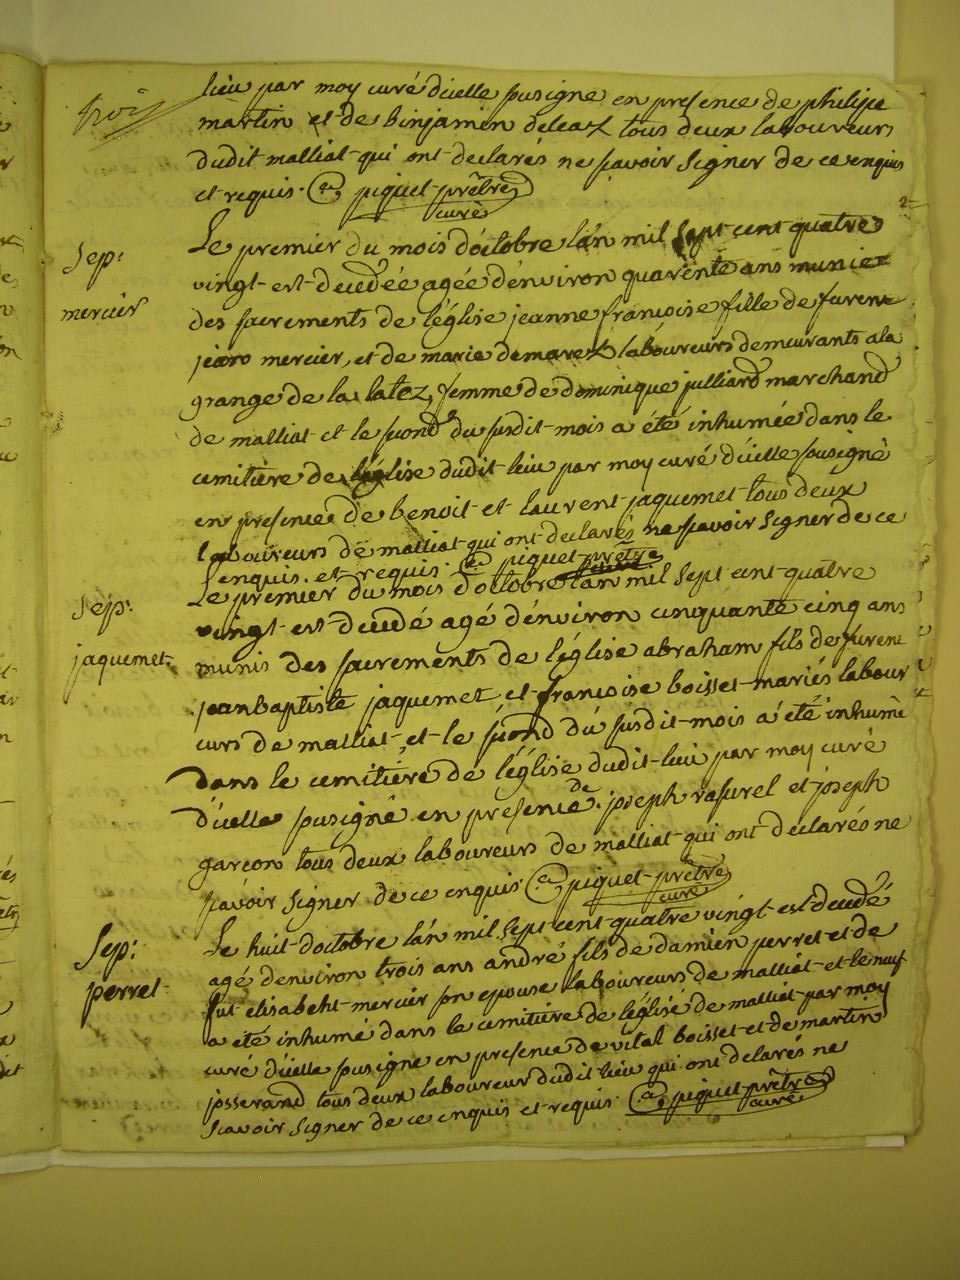 trois
lieu par moy curé d'icelle sousigne en presence de philipe
martin et de binjamin deleaz tous deux laboureurs
dudit malliat qui ont declarés ne scavoir signer de ce enquis
et requis. piquet prêtre
curé
2e
Sep:
mercier
Le premier du mois d'octobre l'an mil sept cent quatre
vingt est decedée agée d'environ quarente ans munie
des sacrements de l'église jeanne françoise fille de furent
jean mercier, et de marie demarest laboureurs demeurants a la
grange de la latez, femme de dominique julliard marchand
de malliat et le second du susdit mois a été inhumée dans le
cemitière de l'église dudit lieu par moy curé d'icelle sousigné
en presence de benoit et laurent jaquemet tous deux
laboureurs de malliat qui ont declarés ne scavoir signer de ce
enquis et requis. piquet prêtre
curé
Sep:
jaquemet
Le premier du mois d'octobre l'an mil sept cent quatre
vingt est decedé agé d'environ cinquante cinq ans
munis des sacrements de l'église abraham fils de furent
jeanbaptiste jaquemet et françoise boisset mariés labour
eurs de malliat, et le second du susdit mois a été inhumé
dans le cemitière de l'église dudit lieu par moy curé
d'icelle sousigné en presence de joseph rasurel et joseph
garçon tous deux laboureurs de malliat qui ont declarés ne
scavoir signer de ce enquis piquet prêtre
curé
Sep:
perret
Le huit d'octobre l'an mil sept cent quatre vingt est decedé
agé d'environ trois ans andré fils de damien perret et de
fut elisabeht mercier son epouse laboureurs de malliat et le neuf
a été inhumé dans le cemitière de l'église de malliat par moy
curé d'icelle sousigne en presence de vital boisset et de martin
josserand tous deux laboureur dudit lieu qui ont declarés ne
scavoir signer de ce enquis et requis. piquet prêtre
curé